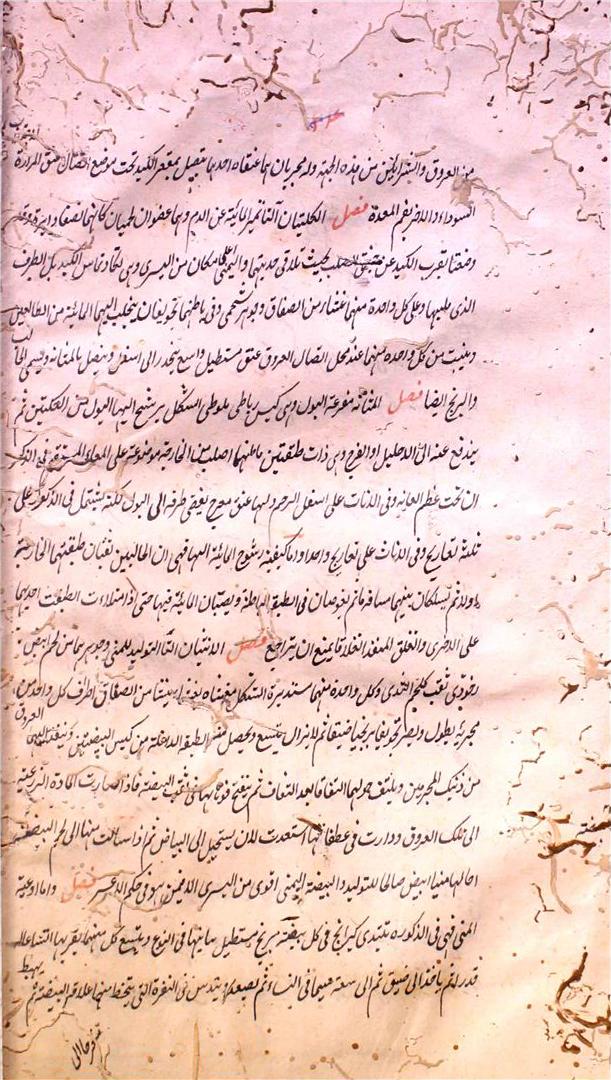 من العروق والشعر الجن من هذه الجهة وله مجريان هما عنقاه احدهما يتصل بمقعر الكبد تحت موضع اتصال عنق المرارة
السوداء والاخر بفم المعدة فصل الكليتان آلتا تميز المائية عن الدم وهما عضوان لحميان كانهما نصفا دايرة وقد
وضعتا بقرب الكبد عن بحيث تلاقى حدبتهما واليمنى اعلى مكان من اليسرى وهى تكاد تماس الكبد بل الطرف
الذى يليها وعلى كل واحدة منهما غشاء من الصفاق وجوهر شحمى وفى باطنهما تجويفان ينجلب اليهما المائية من الطالعين
وينبت من كل واحدة منهما عند محل اتصال العروق عنق مستطيل واسع ينحدر الى اسفل ويتصل بالمثانة ويسمى الحالب
والبربخ ايضا فصل المثانة مفرغة البول وهى كيس رباطى بلوطى الشكل يرشح اليها البول من الكليتين ثم
يندفع عنه الى الاحليل او الفرج وهى ذات طبقتين باطنهما اصلب من الخارجة موضوعة على المعاء المستقيم فى الذكر
ان تحت عظم العانة وفى الاناث على اسفل الرحم ولها عنق معوج يفضى طرفه الى البول لكنه يشتمل فى الذكور على
ثلثة تعاريج وفى الاناث على تعريج واحد واما كيفية رشوح المائية اليها فهى ان الحالبين ثقبان طبقتها الخارجة
اولا ثم يسلكان بينهما مسافة ما ثم يغوصان فى الطبقة الباطنة ويصبان المائية فيها حتى اذا امتلاءت انطبقت احديهما
على الاخرى وانغلق المنفذ انغلاقا يمنع ان يتراجع فصل الانثيان آلتا التوليد للمنى وجوهرهما من لحم ابيض
رخو ذى ثقب كلحم الثدى وكل واحدة منهما مستديرة الشكل مغشاة بغشاء ينبت من الصفاق اطراف كل واحد من العروق
مجريه يطول ويصير تجويفا بربخيا ضيقا ثم لا يزال يتسع ويحصل منه الطبقة الداخلة من كيس البيضتين وينفذ اليهما
من ذينك المجريين ويلتف حوليهما التفافا بعد التفاف ثم ينفتح فوهاتها فى ثقب البيضة فاذا صارت المادة الزرعية
الى تلك العروق ودارت فى عطفاتها استعدت لان يستحيل الى البياض ثم اذا سالت منها الى لحم البيضتين
احالها منيا ابيض صالحا للتوليد والبيضة اليمنى اقوى من اليسرى الا فيمن هو فى حكم الاعسر فصل واما اوعية
المنى فهى فى الذكورة تبتدى كبرابخ فى كل بيضة بربخ مستطيل مباينها فى النوع ويتسع كل منهما
قدر ثم ياخذ الى ضيق ثم الى سعة سيما فى النساء ثم يصعد